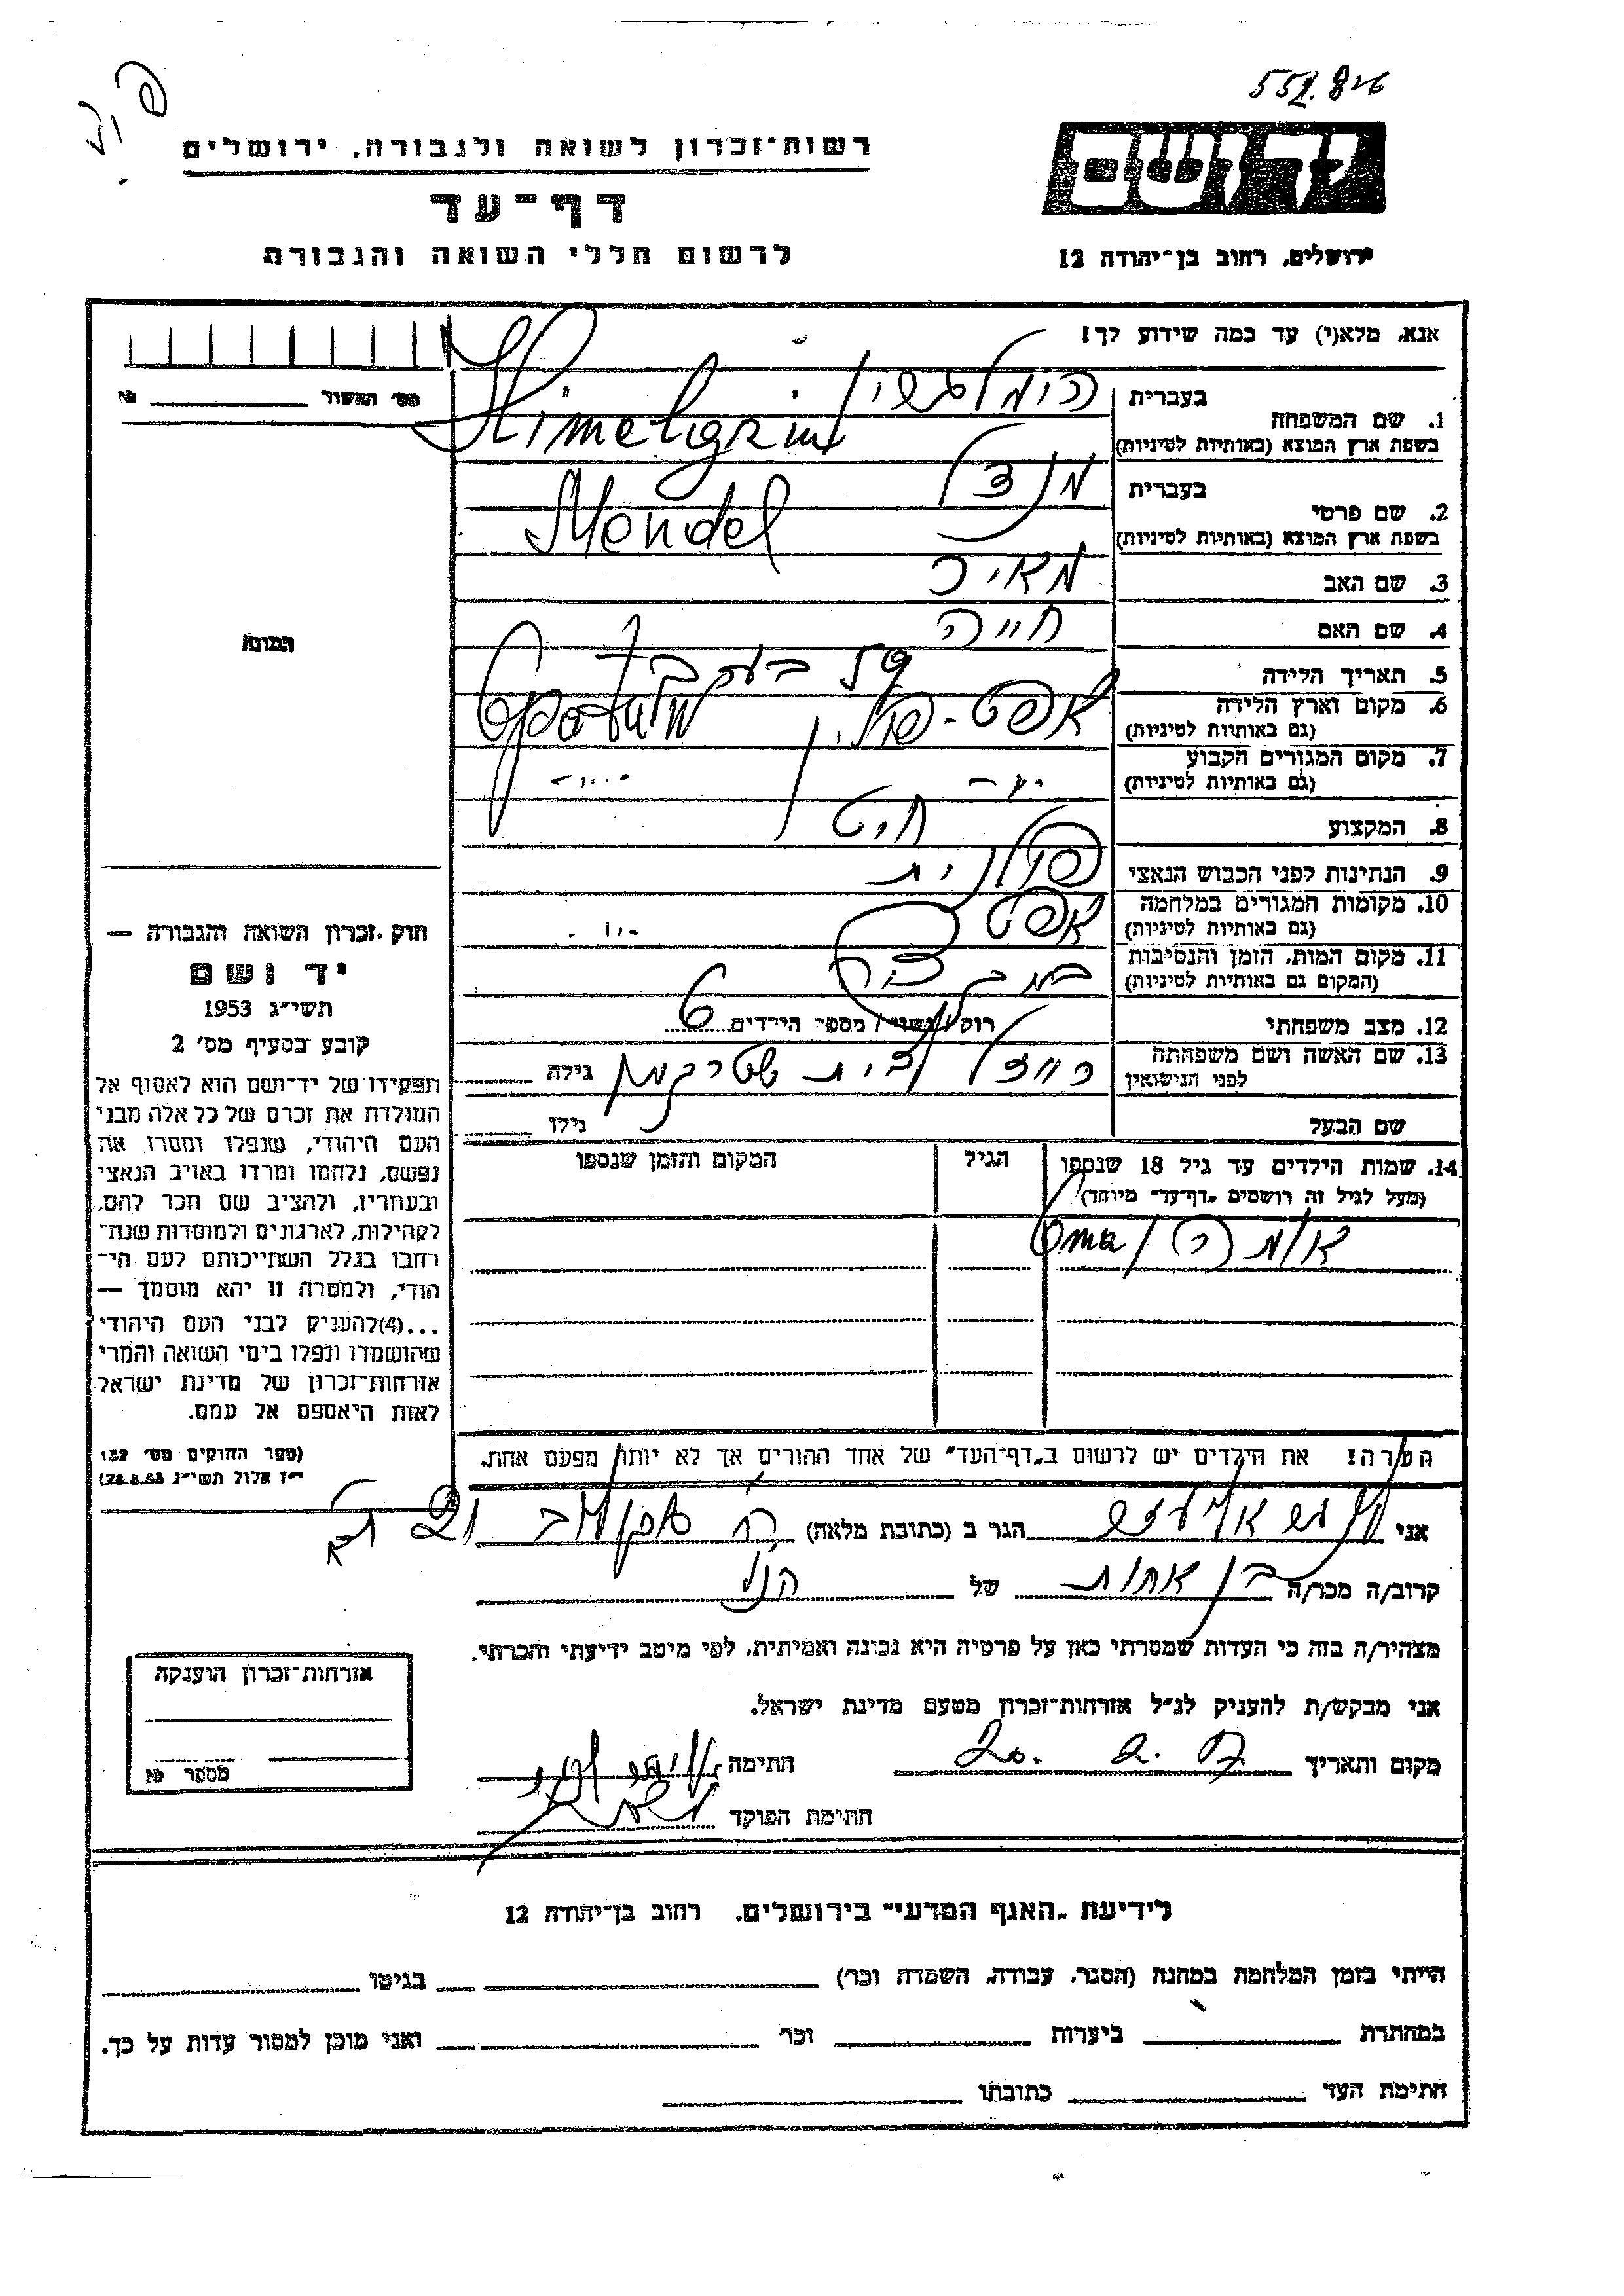 רשות־זכרון לשואה ולגבורה, ירושלים
דף־עד
לרשום חללי השואה והגבורה
ירושלים, רחוב בן־יהודה 12
אנא, מלא(י) עד כמה שידוע לך!
מס׳ האשור №
1. שם המשפחה בעברית
בשפת ארץ המוצא (באותיות לטיניות) Himelgrin
2. שם פרטי בעברית מנדל
בשפת ארץ המוצא (באותיות לטיניות) Mendel
3. שם האב מאיר
4. שם האם חייה
5. תאריך הלידה
6. מקום וארץ הלידה
(גם באותיות לטיניות)
7. מקום המגורים הקבוע
(גם באותיות לטיניות)
8. המקצוע חייט
9. הנתינות לפני הכבוש הנאצי פולנית
10. מקומות המגורים במלחמה אפט
(גם באותיות לטיניות)
11. מקום המות, הזמן והנסיבות
(המקום גם באותיות לטיניות)
12. מצב משפחתי רווק/נשוי/מספר הילדים 6
13. שם האשה ושם משפחתה לפני הנישואין בית גילה
שם הבעל גילו
14. שמות הילדים עד גיל 18 שנספו הגיל המקום והזמן שנספו
(מעל לגיל זה רושמים „דף־עד״ מיוחד)
הערה! את הילדים יש לרשום ב„דף־העד״ של אחד ההורים אך לא יותר מפעם אחת.
התמונה
חוק זכרון השואה והגבורה —
יד ושם
תשי״ג 1953
קובע בסעיף מס׳ 2
תפקידו של יד־ושם הוא לאסוף אל
המולדת את זכרם של כל אלה מבני
העם היהודי, שנפלו ומסרו את
נפשם, נלחמו ומרדו באויב הנאצי
ובעוזריו, ולהציב שם וזכר להם,
לקהילות, לארגונים ולמוסדות שנח־
רבו בגלל השתייכותם לעם הי־
הודי, ולמטרה זו יהא מוסמך —
...(4)להעניק לבני העם היהודי
שהושמדו ונפלו בימי השואה והמרי
אזרחות־זכרון של מדינת ישראל
לאות היאספם אל עמם.
(ספר החוקים מס׳ 132
י״ז אלול תשי״ג 28.8.53)
אני הגר ב (כתובת מלאה)
קרוב/ה מכר/ה בן אחות של הנ״ל
מצהיר/ה בזה כי העדות שמסרתי כאן על פרטיה היא נכונה ואמיתית, לפי מיטב ידיעתי והכרתי.
אני מבקש/ת להעניק לנ״ל אזרחות־זכרון מטעם מדינת ישראל.
מקום ותאריך חתימה
חתימת הפוקד
אזרחות־זכרון הוענקה
מספר №
לידיעת „האגף המדעי״ בירושלים, רחוב בן־יהודה 12
הייתי בזמן המלחמה במחנה (הסגר, עבודה, השמדה וכו׳) בגיטו
במחתרת ביערות וכו׳ ואני מוכן למסור עדות על כך.
חתימת העד כתובתו